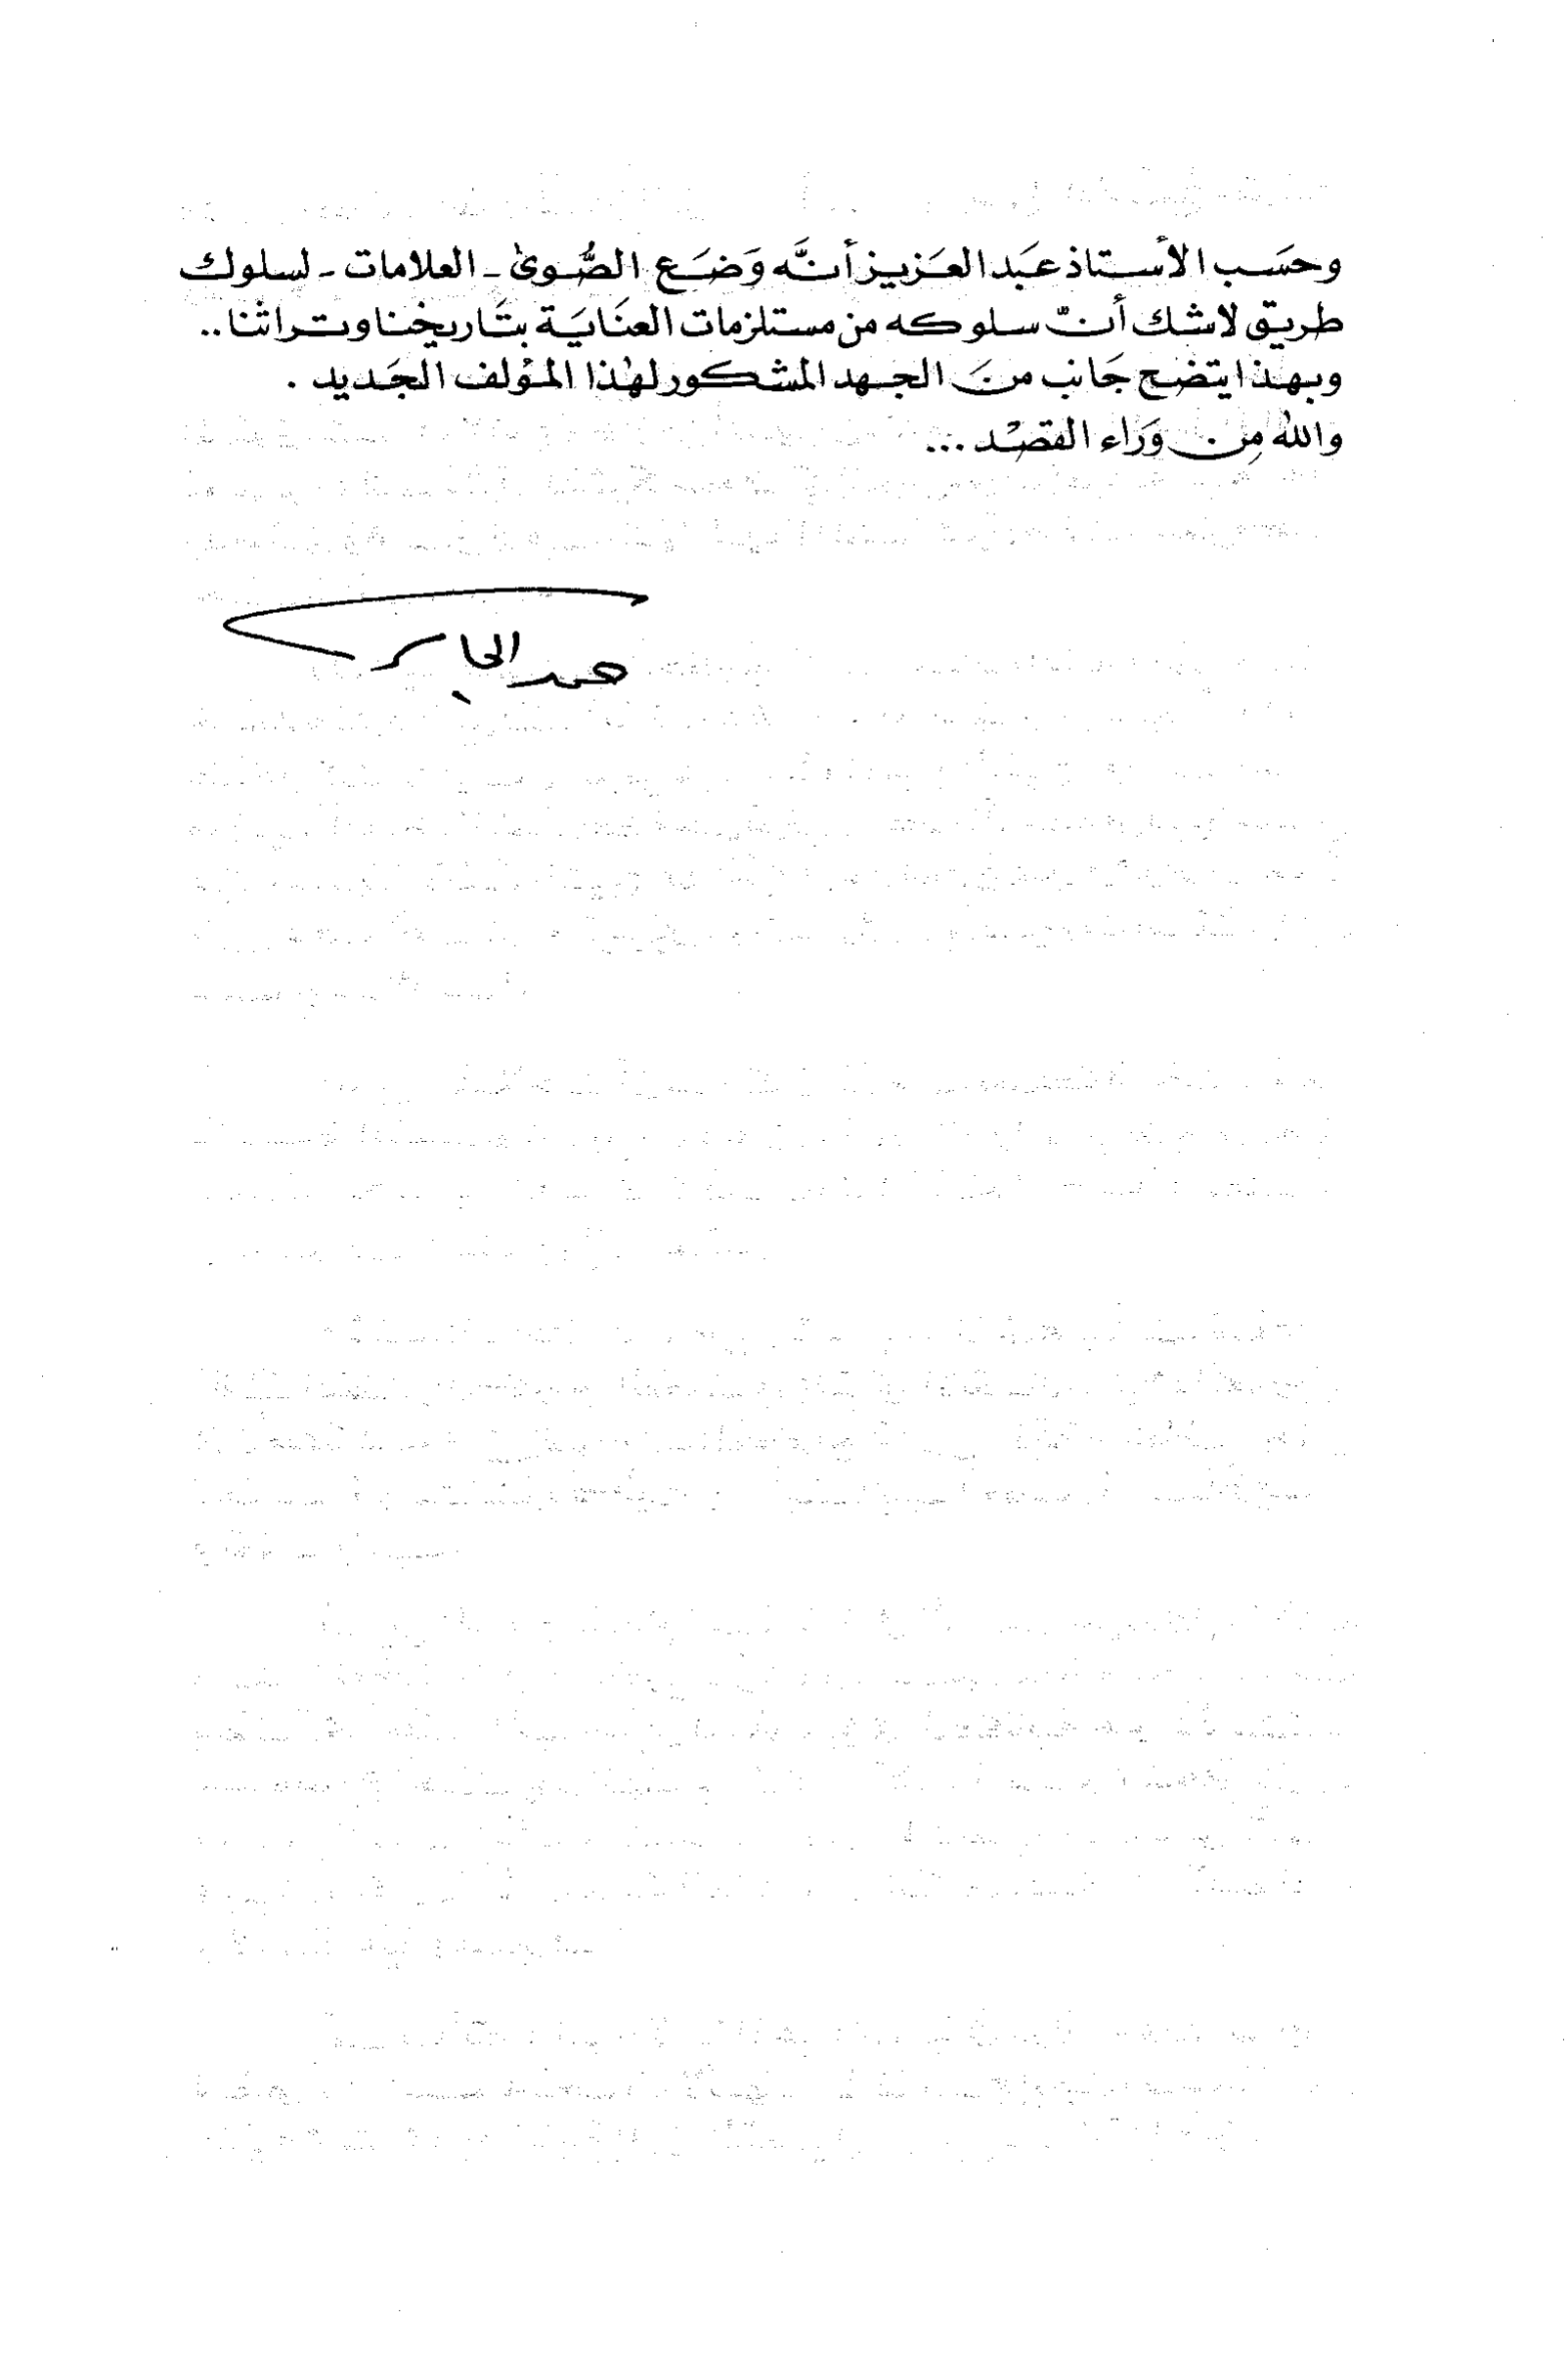 وحسَب الأستاذ عَبد العَزيز أنَّه وَضَع الصُّوىٰ - العلامات - لسلوك
طريق لاشك أنّ سلوكه من مستلزمات العنَايَة بتَاريخنا وتراثنا ..
وبهذا يتضح جَانب منَ الجهد المشكور لهٰذا المؤلف الجَديد .
والله مِن وَراء القصْد ...
حمد الجاسر